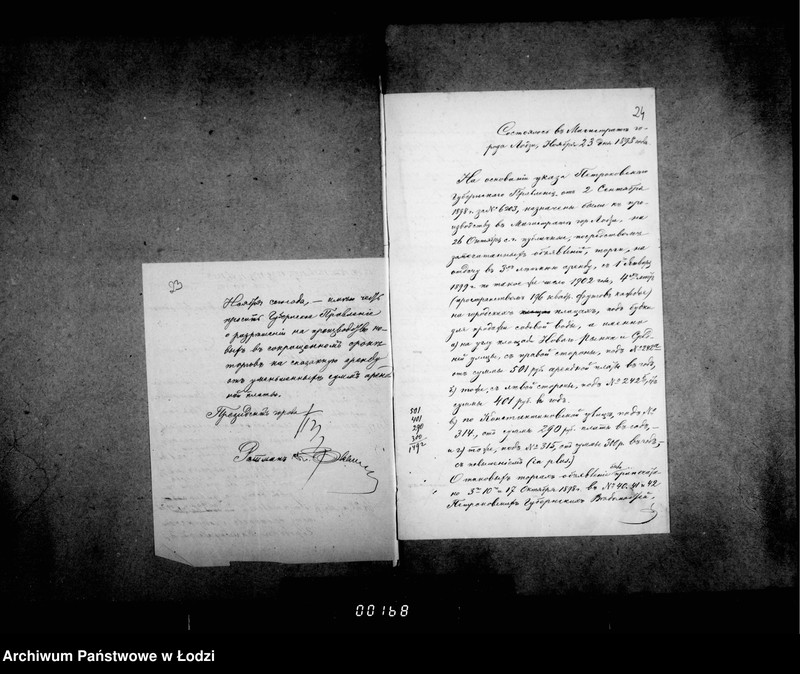 23
Ноября сего года, — имеетъ честь
просить Губернское Правленіе
о разрѣшеніи на производство но-
выхъ въ сокращенномъ срокѣ
торговъ на сказанную аренду
отъ уменьшенныхъ суммъ аренд-
ной платы.
Президентъ города
Ратманъ
24
Состоялось въ Магистратѣ го-
рода Лодзи, Ноября 23 дня 1898 года
На основаніи указа Петроковскаго
Губернскаго Правленія отъ 2 Сентября
1898 г. за № 6703, назначены были къ про-
изводству въ Магистратѣ гор. Лодзи, на
26 Октября с. г. публичные, посредствомъ
запечатанныхъ объявленій, торги, на
отдачу въ 3хъ лѣтнюю аренду, съ 1 Января
1899 г. по тоже число 1902 года, 4хъ
(пространствомъ 196 квадр. футовъ каждое)
на городскихъ площадяхъ, подъ будки
для продажи содовой воды, а именно:
а) на углу площади Новаго Рынка и Сред-
ней улицы, съ правой стороны, подъ №
отъ суммы 501 руб. арендной платы въ годъ,
б) тоже, съ лѣвой стороны, подъ № 242
суммы 401 руб. въ годъ.
в) по Константиновской улицѣ, подъ №
314, отъ суммы 290 руб. платы въ годъ, —
и г) тоже, подъ № 315, отъ суммы 300 р. въ годъ,
(in plus)
501
401
290
300
1492
О таковыхъ торгахъ объявленія
но 3го 10го и 17 Октября 1898 г. въ № 40, 41 и 42
Петроковскихъ Губернскихъ Вѣдомостей,
00168
Archiwum Państwowe w Łodzi